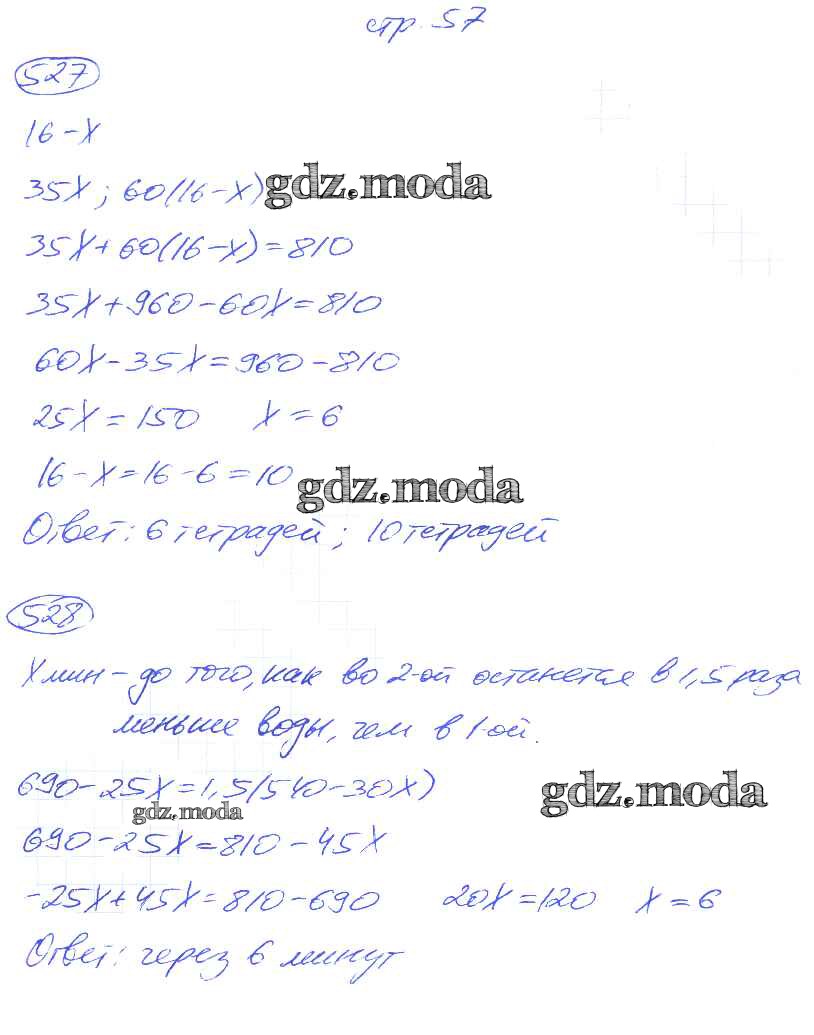 стр. 57
527
16-х
35х; 60(16-х) gdz.moda
35х+60(16-х)=810
35х+960-60х=810
60х-35х=960-810
25х=150 х=6
16-х=16-6=10 gdz.moda
Ответ: 6 тетрадей; 10 тетрадей
528
Х мин - до того, как во 2-ой останется в 1,5 раза
меньше воды, чем в 1-ой.
690-25х=1,5(540-30х) gdz.moda
gdz.moda
690-25х=810-45х
-25х+45х=810-690 20х=120 х=6
Ответ: через 6 минут